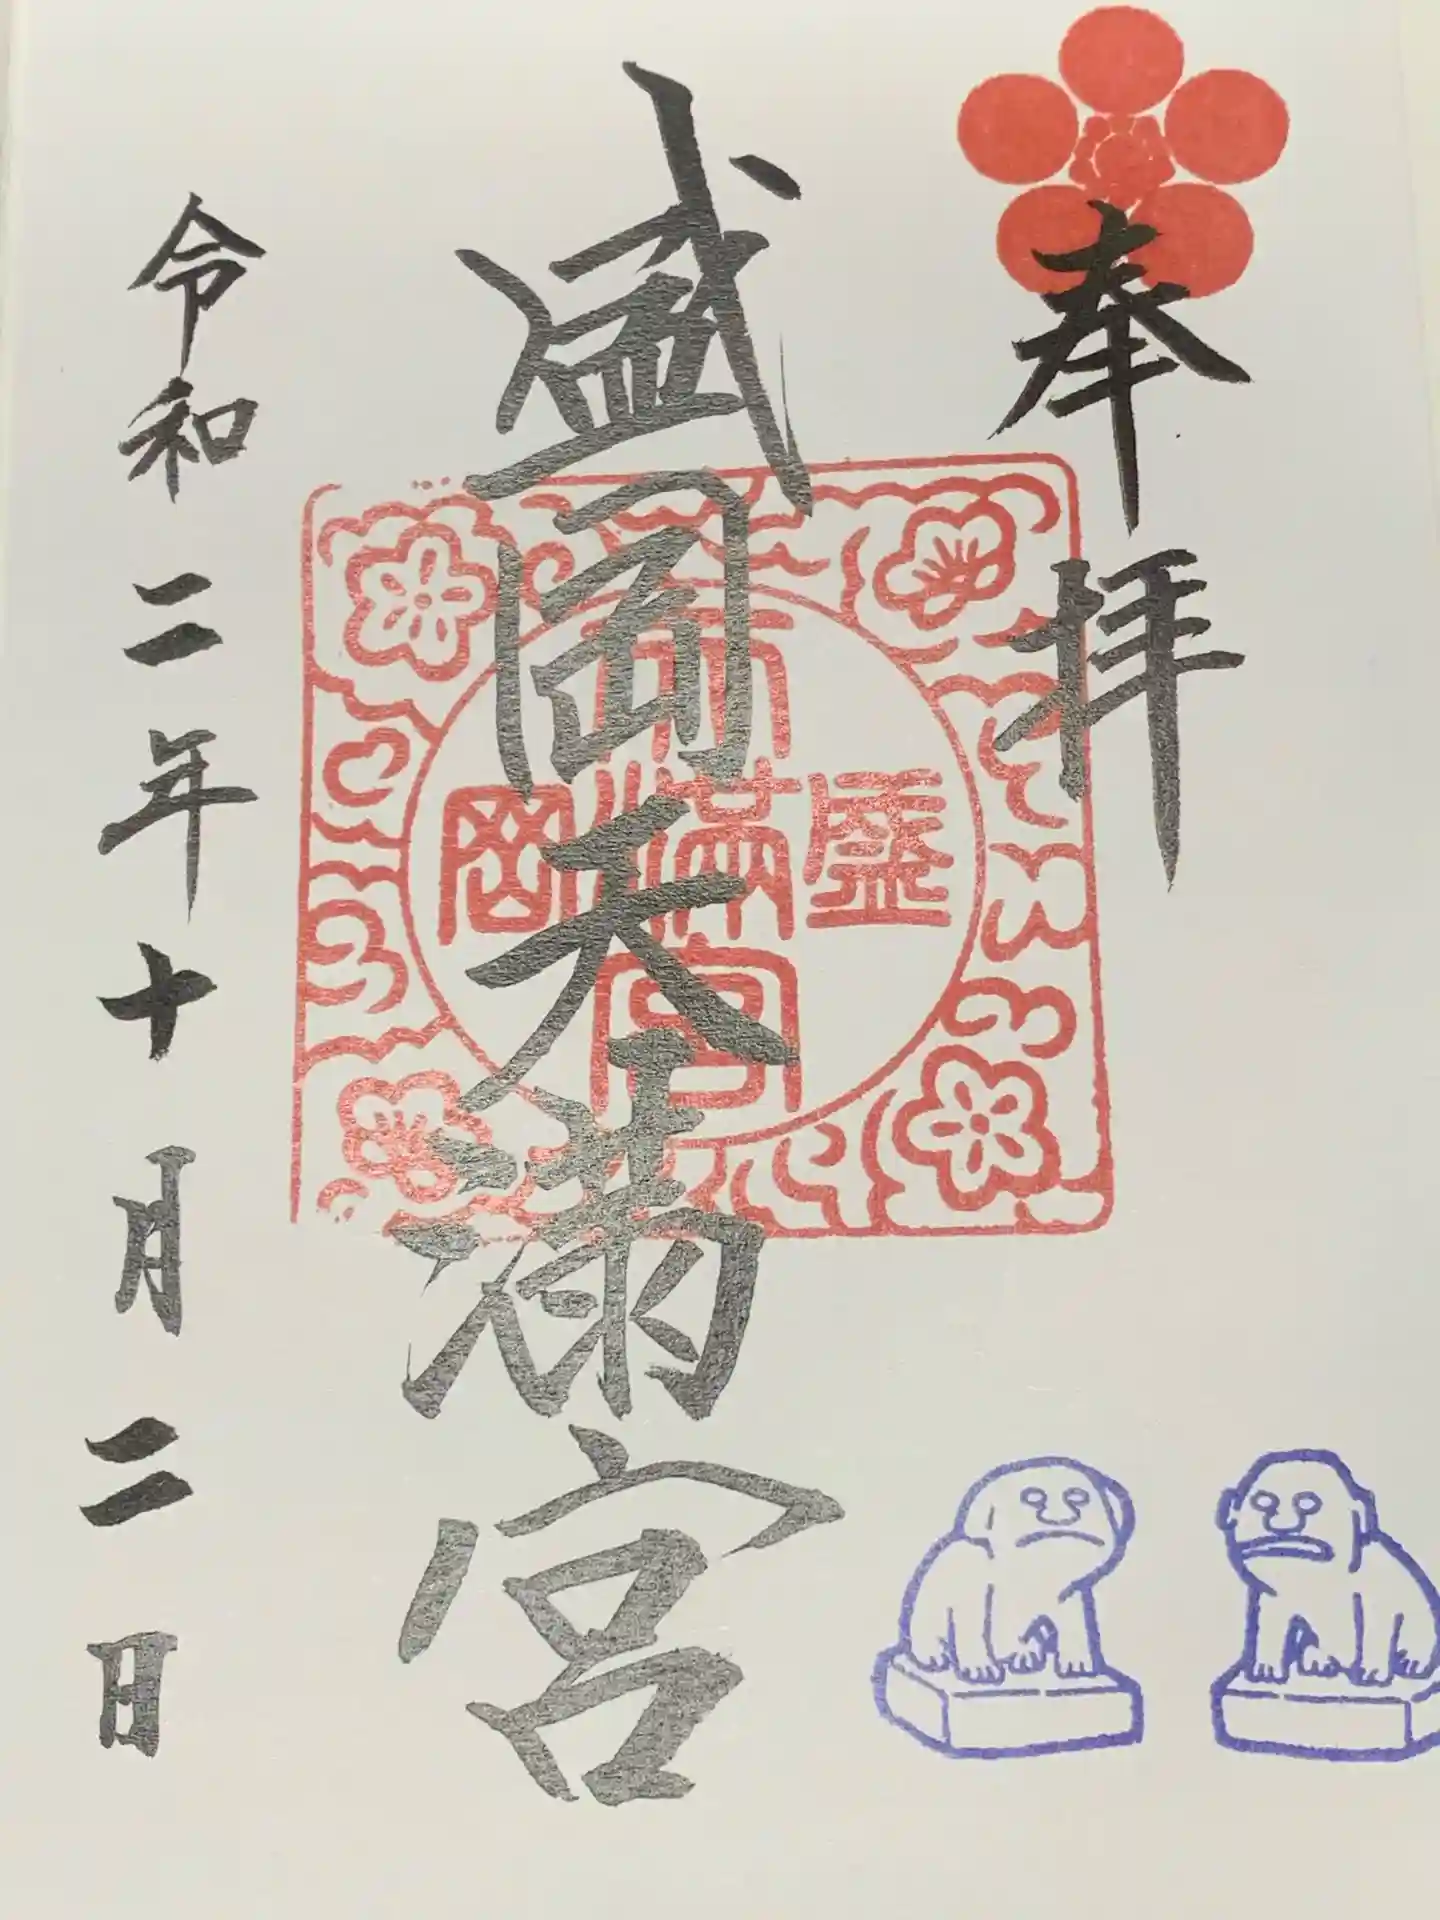 奉拝
盛岡天満宮
天満宮
盛岡
令和二年十月二日